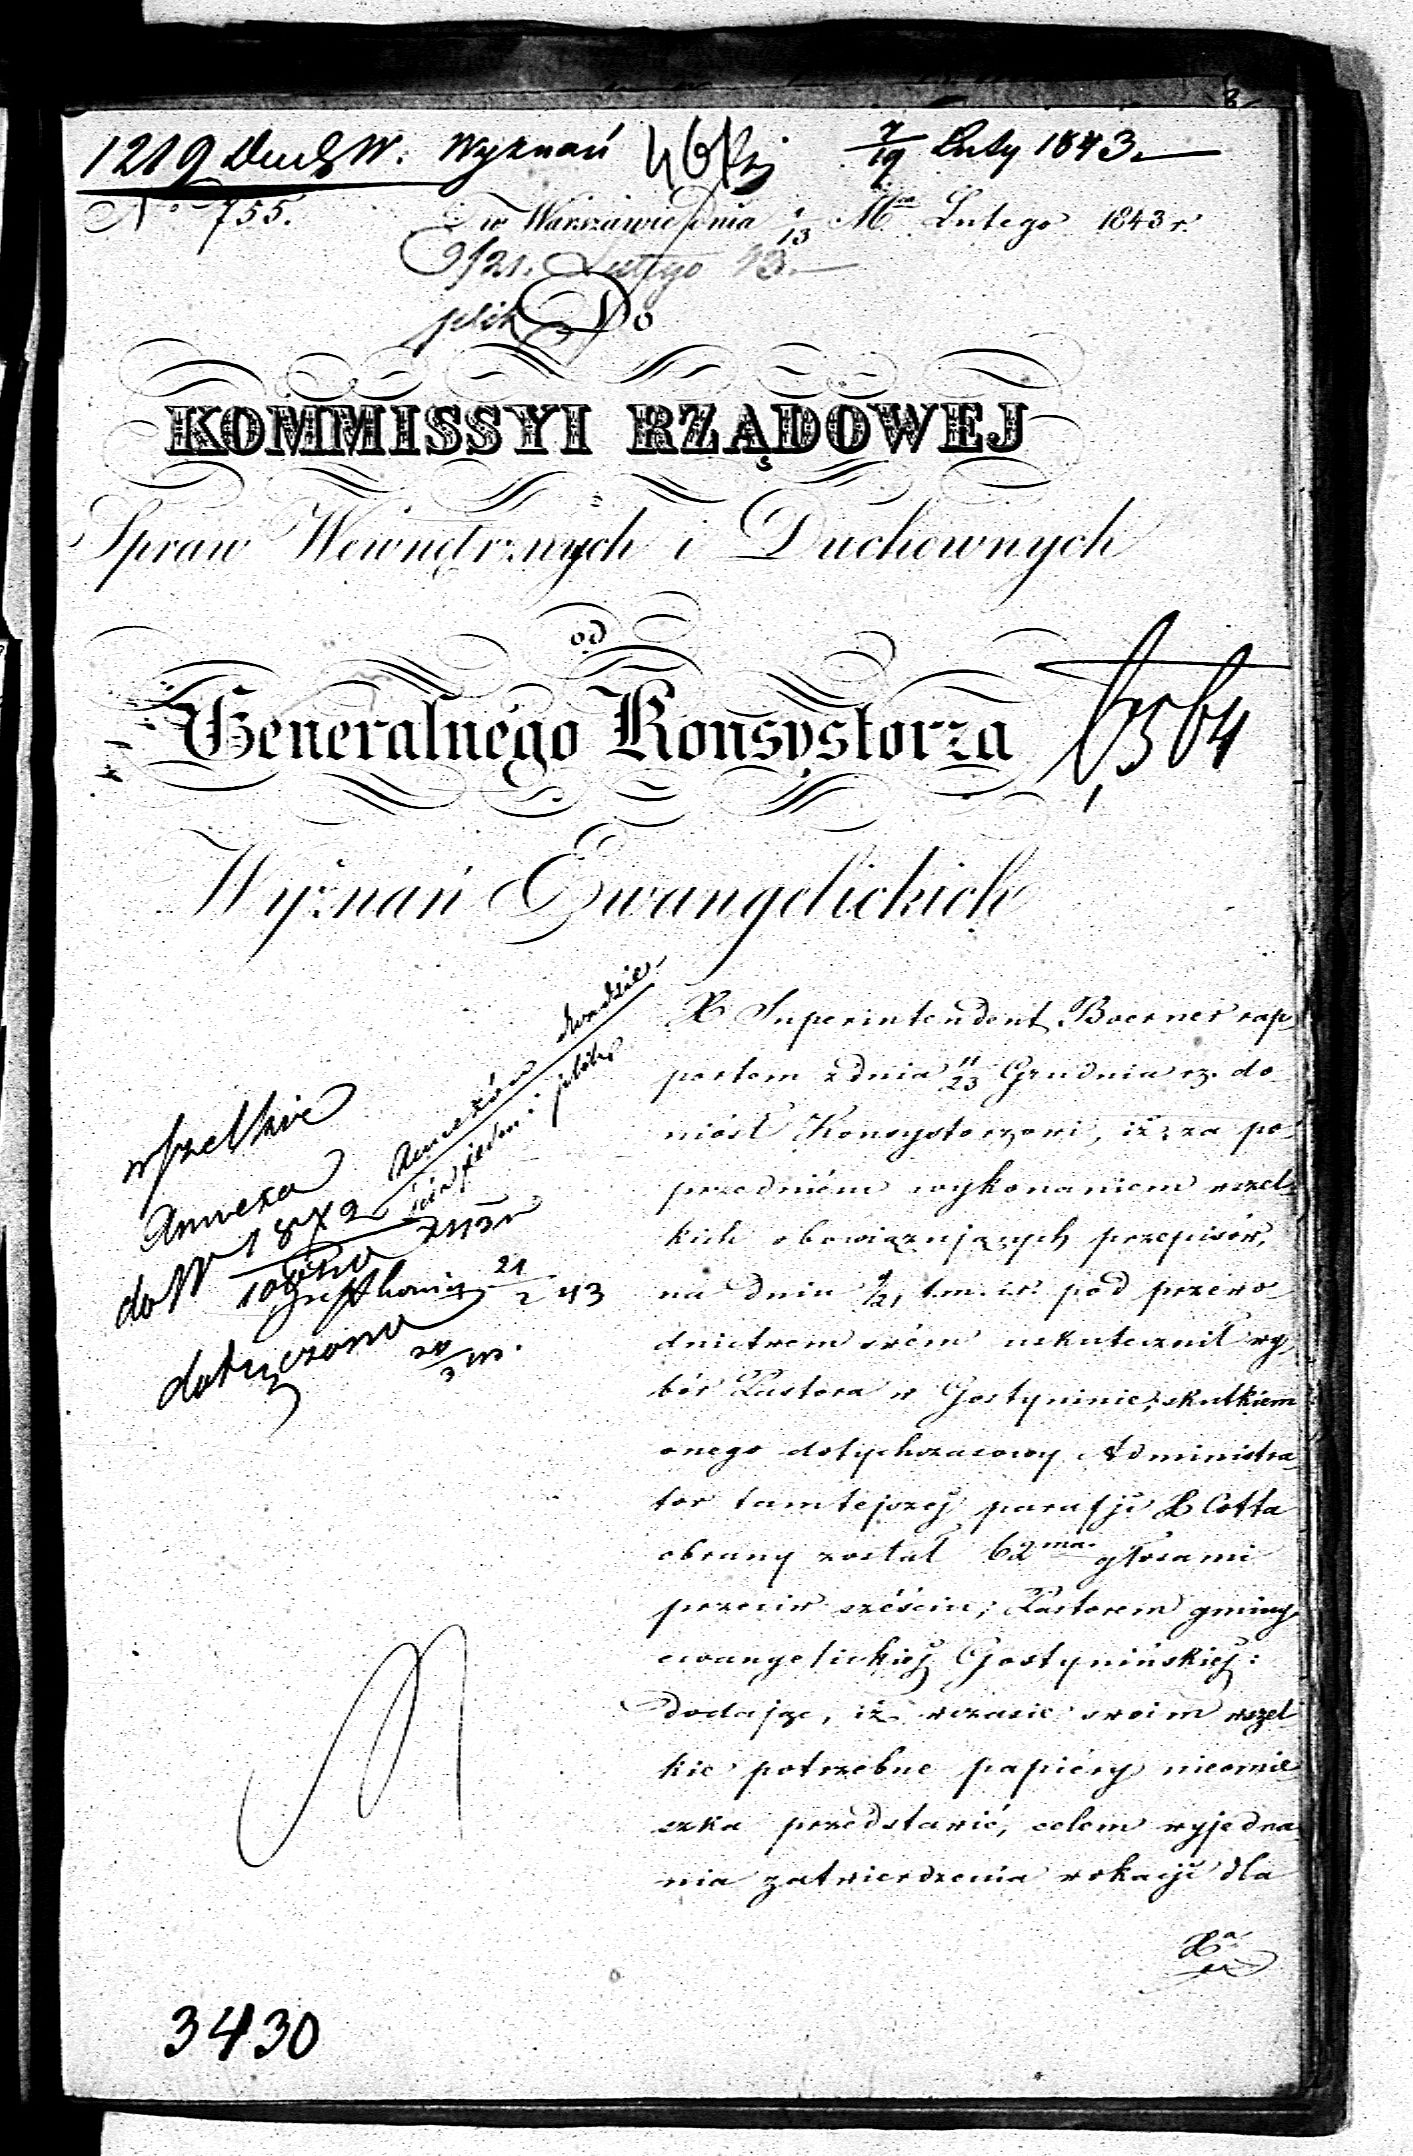 8
1219 Duch W. Wyznań
7/19 Luty 1843
No 755.
w Warszawie dnia 1/13 Mca Lutego 1843 r.
9/21. Lutego 43.
Do
KOMMISSYI RZĄDOWEJ
Spraw Wewnętrznych i Duchownych
od
Generalnego Konsystorza
Wyznań Ewangelickich
X Superintendent Boerner rap
portem z dnia 11/23 Grudnia rz. do-
niósł Konsystorzowi, iż za po-
przedniém wykonaniem wszel-
kich obowiązujących przepisów,
na dniu 9/21 t.m. ir. pod przewo-
dnictwem swém uskutecznił wy-
bór Pastora w Gostyninie; skutkiem
onego dotychczasowy Administra-
tor tamtejszej parafji X Cotta
obrany został 62ma głosami
przeciw sześciu; Pastorem gminy
ewangelickiej Gostynińskiej:
dodając, iż wczasie swoim wszel-
kie potrzebne papiéry nieomie-
szka przedstawić, celem wyjedna-
nia zatwierdzenia wokacji dla
Xa
wszelkie
Annexa
do N 1872
dołączono
21/2 43
3430